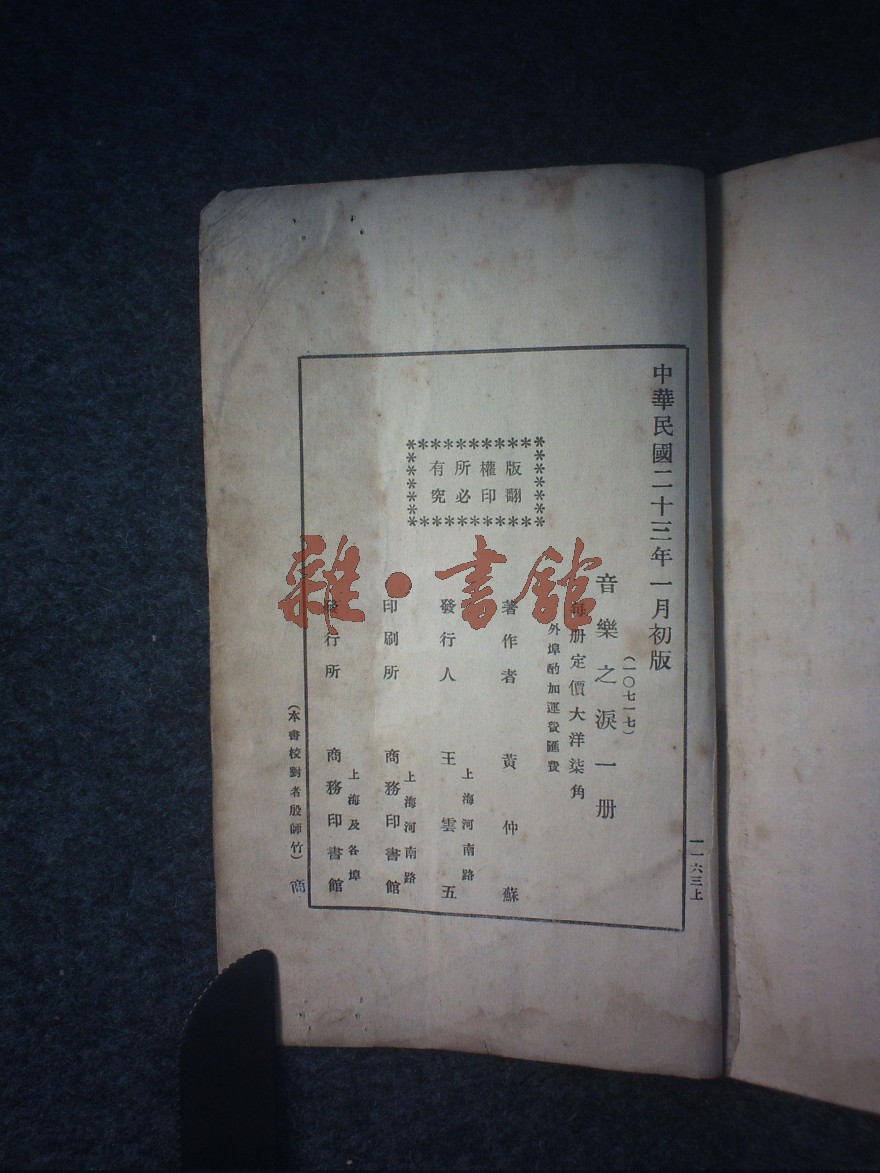 中華民國二十三年一月初版
(一〇七一七)
音樂之淚一册
每册定價大洋柒角
外埠酌加運費匯費
版權所有
翻印必究
著作者 黃仲蘇
發行人 王雲五
上海河南路
印刷所 商務印書館
上海河南路
發行所 商務印書館
上海及各埠
(本書校對者殷師竹)
商
一一六三上
雜·書館